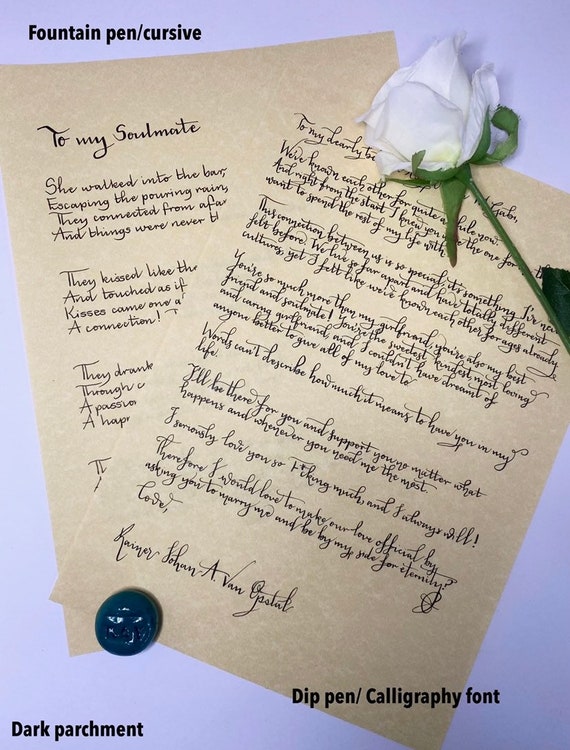 Fountain pen/cursive
To my Soulmate
She walked into the bar,
Escaping the pouring rain,
They connected from afar
And things were never t
They kissed like the
And touched as if
Kisses came one a
A connection!
They drank
Through
A passion
A hap
To my dearly be
Gabs,
We've known each other for quite a while now.
And right from the start I knew you were the one for me
want to spend the rest of my life with
This connection between us is so special, it's something I've never
felt before. We live so far apart and have totally different
cultures, yet I felt like we've known each other for ages already.
You're so much more than my girlfriend, you're also my best
friend and soulmate! You're the sweetest, kindest most loving
and caring girlfriend, and I couldn't have dreamt of
anyone better to give all of my love to.
Words can't describe how much it means to have you in my
life.
I'll be there for you and support you no matter what
happens and whenever you need me the most.
I seriously love you so f*cking much, and I always will!
Therefore I would love to make our love official by
asking you to marry me and be by my side for eternity?
Love,
Rainer Johan A. Van Opstal
Dip pen/ Calligraphy font
Dark parchment